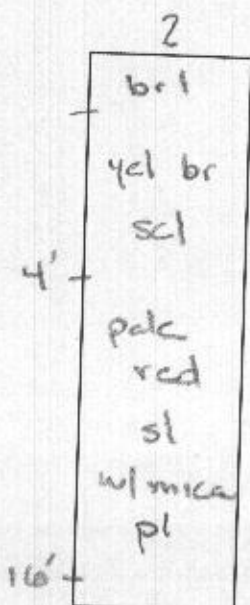 2
br l
yel br
scl
4'
pale
red
sl
w/ mica
pl
16'